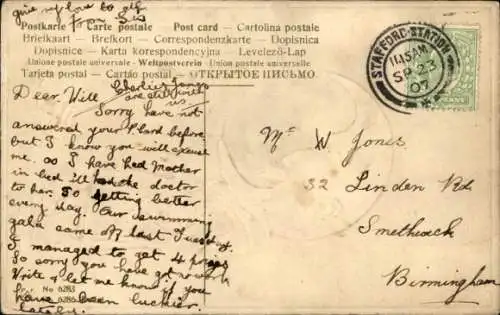 give my love to all
from Sis
Postkarte Carte postale Post card - Cartolina postale
Briefkaart - Brefkort - Correspondenzkarte - Dopisnica
Dopisnice - Karta korespondencyjna - Levelező-Lap
Union postale universelle - Weltpostverein - Unione postale universale
Tarjeta postal - Cartão postal - ОТКРЫТОЕ ПИСЬМО
STAFFORD STATION
11.45 AM
SP 23
07
Charlie &
are still with
us
Dear Will
Sorry have not
answered your P.Card before
but I know you will excuse
me. as I have had Mother
in bed ill had the doctor
to her. So getting better
every day. Our swimming
gala came off last Tuesday.
I managed to get 4 prizes
So sorry you have got no work
Write & let me know if you
have been luckier
lately.
No 6283
Mr W Jones
32 Linden Rd
Smethwick
Birmingham